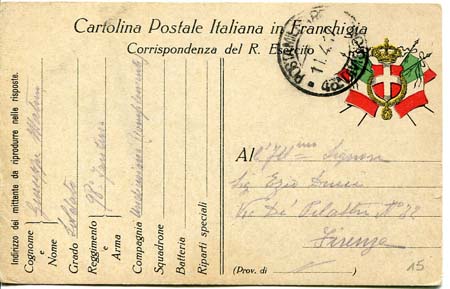 Cartolina Postale Italiana in Franchigia
Corrispondenza del R. Esercito
POSTA MILITARE
11.4.1
Indirizzo del mittente da riprodurre nelle risposte.
Cognome
e
Nome
Grado Soldato
Reggimento 98° Fanteria
e
Arma
Compagnia
Squadrone
Batteria
Riparti speciali
All'Ill^mo Signor
Sig Ezio
Via De' Pilastri N° 32
Firenze
(Prov. di )
15